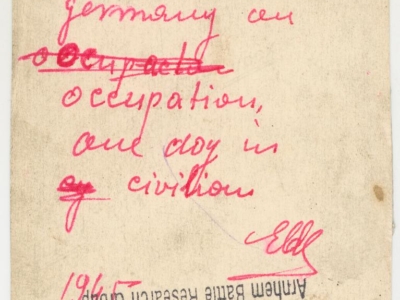 germany on
occupation,
one day in
civilian
1945
Arnhem Battle Research Group